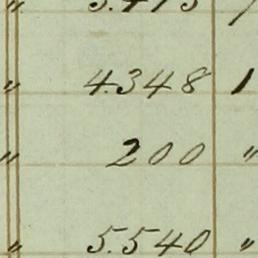 " 3.413
" 4.348 1
" 200 "
" 5.540 "